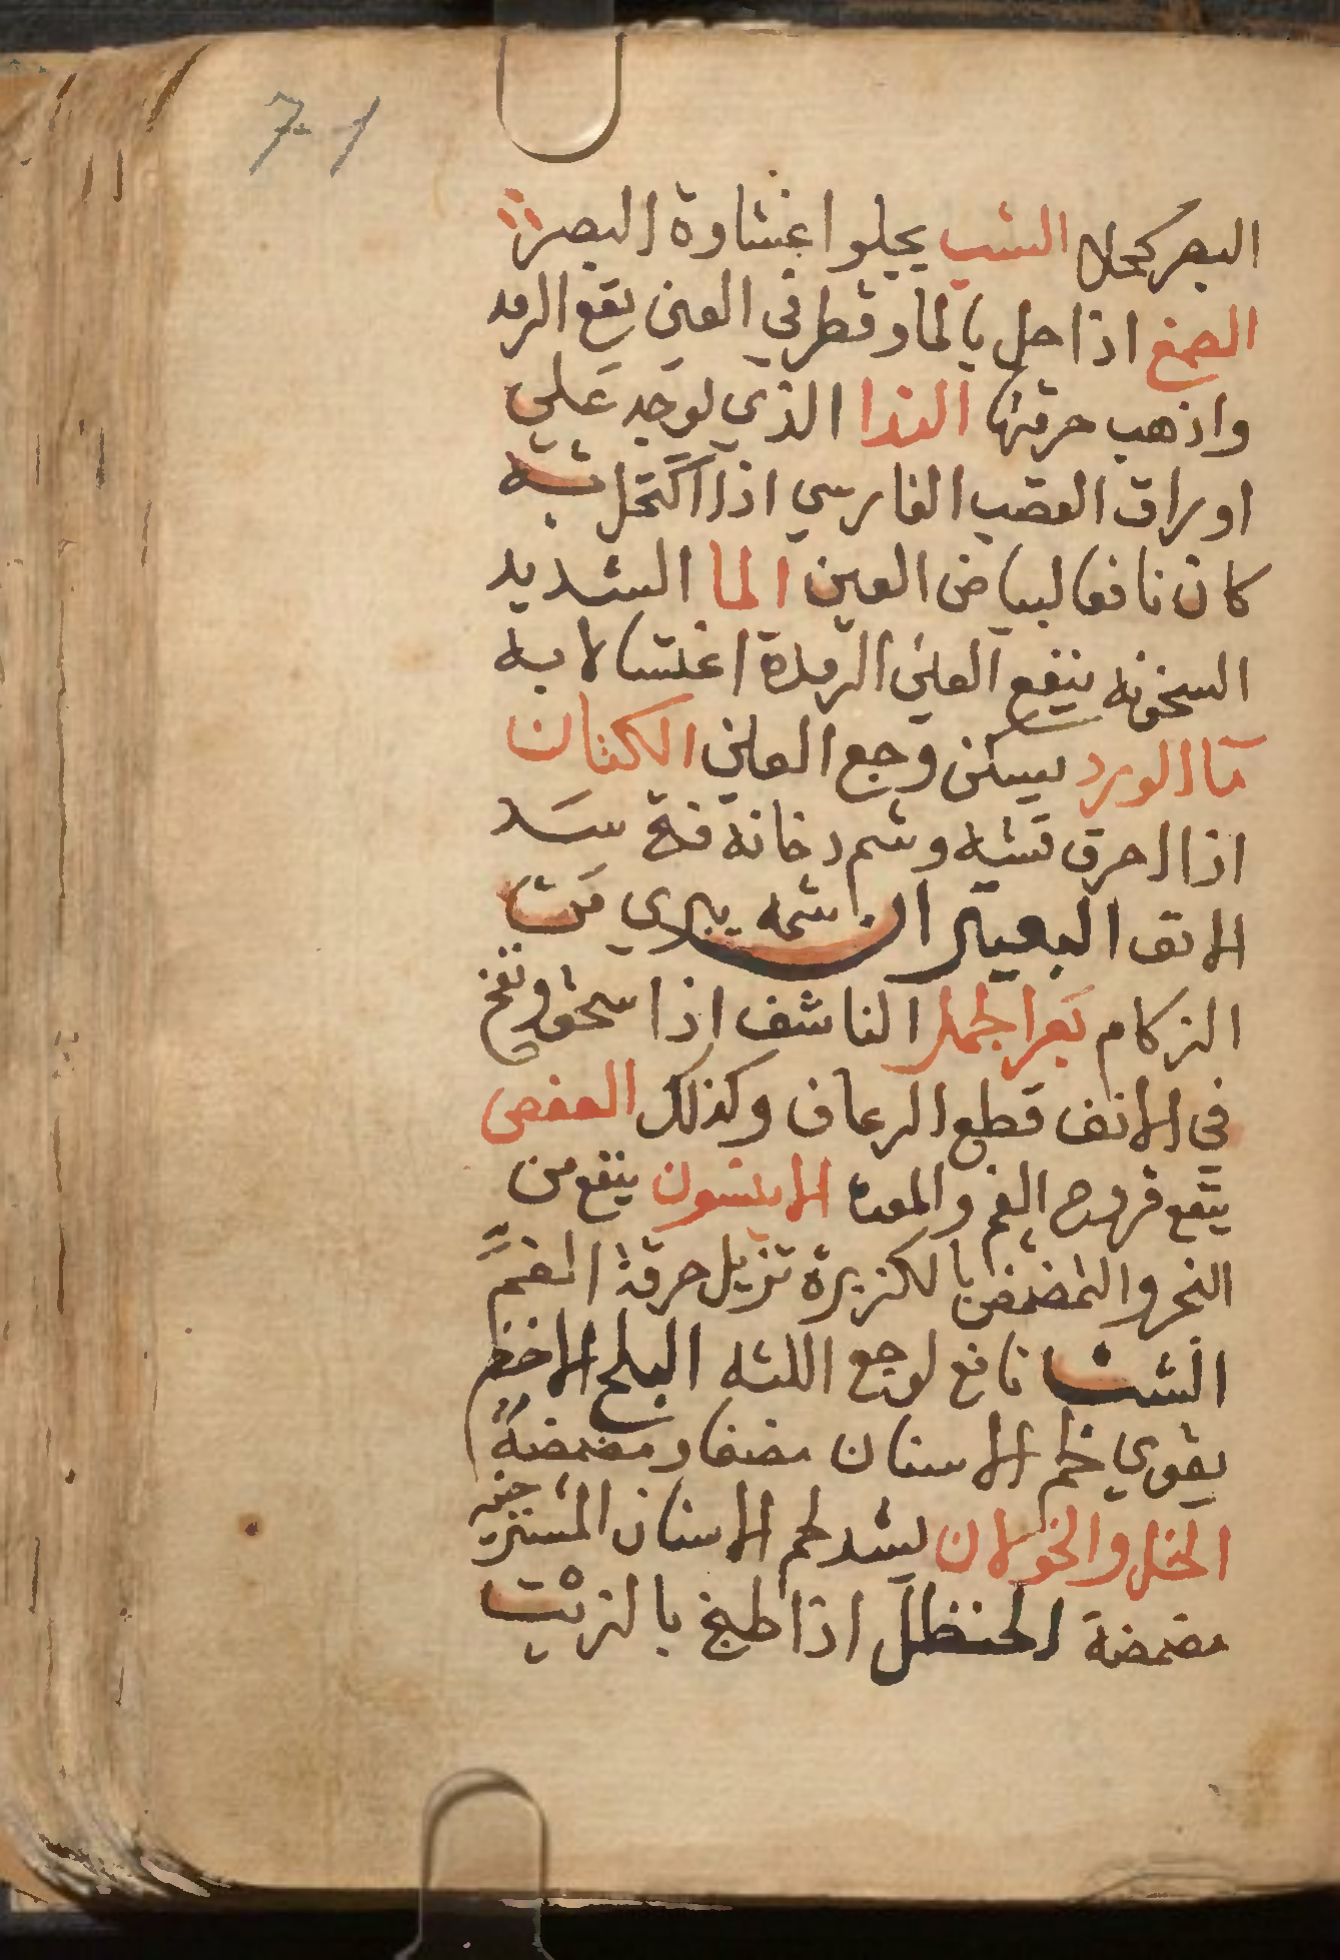 7-1
البصر كحلا الشب يجلوا غشاوة البصر
الصمغ اذا حل بالما وقطر في العين نفع الرمد
واذهب حرقتها الندا الذي يوجد على
اوراق القصب الفارسي اذا اكتحل به
كان نافعا لبياض العين الما الشديد
السخونه ينفع العين الرمدة اغتسالا به
مآ الورد يسكن وجع العين الكتان
اذا احرق قشه وشم دخانه فتح سدد
الانف البعيتران شمه يبري من
الزكام بعر الجمل الناشف اذا سحق ونفخ
في الانف قطع الرعاف وكذلك العفص
ينفع قروح الفم والمعدة الاينسون ينفع من
البخر والتمضمض بالكزبرة تزيل حرقة الفم
الشب نافع لوجع اللثه البلح الاخضر
يقوي لحم الاسنان مضغا ومضمضة
الخل والخولان يشد لحم الاسنان المسترخيه
مضمضة الحنظل اذا طبخ بالزيت